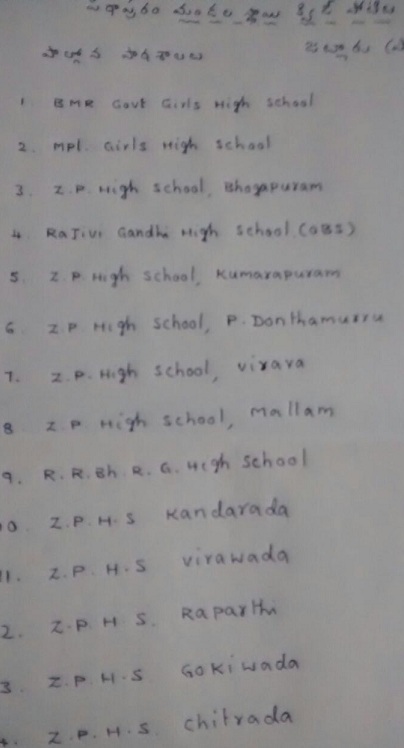 పిఠాపురం మండల స్థాయి క్విజ్ పోటీలు
పాల్గొన్న పాఠశాలలు
1 BMR Govt Girls High School
2. Mpl. Girls High School
3. Z.P. High School, Bhogapuram
4. Rajivi Gandhi High School (OBS)
5. Z.P. High School, Kumarapuram
6 Z.P. High School, P. Donthamurru
7. Z.P. High School, Virava
8 Z.P High School, Mallam
9. R.R.Bh.R.G. High School
0. Z.P.H.S Kandarada
11. Z.P.H.S Virawada
2. Z.P.H.S. Raparthi
3 Z.P.H.S Gokiwada
4. Z.P.H.S. Chitrada